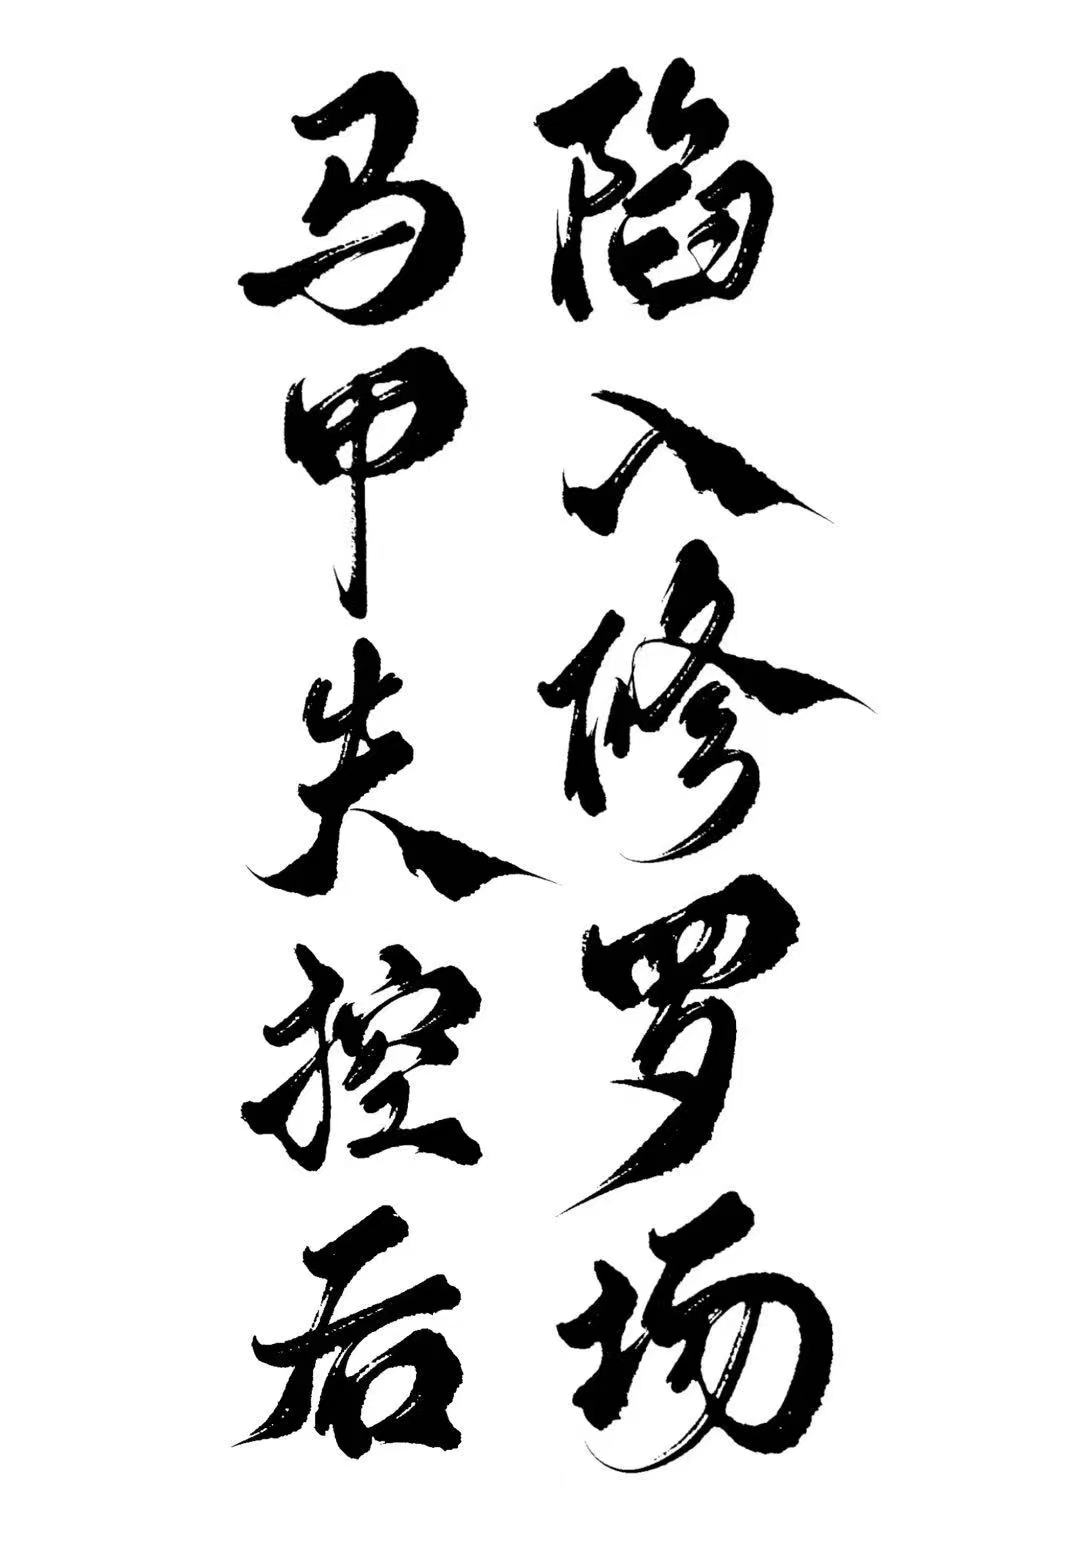 马甲失控后
陷入修罗场